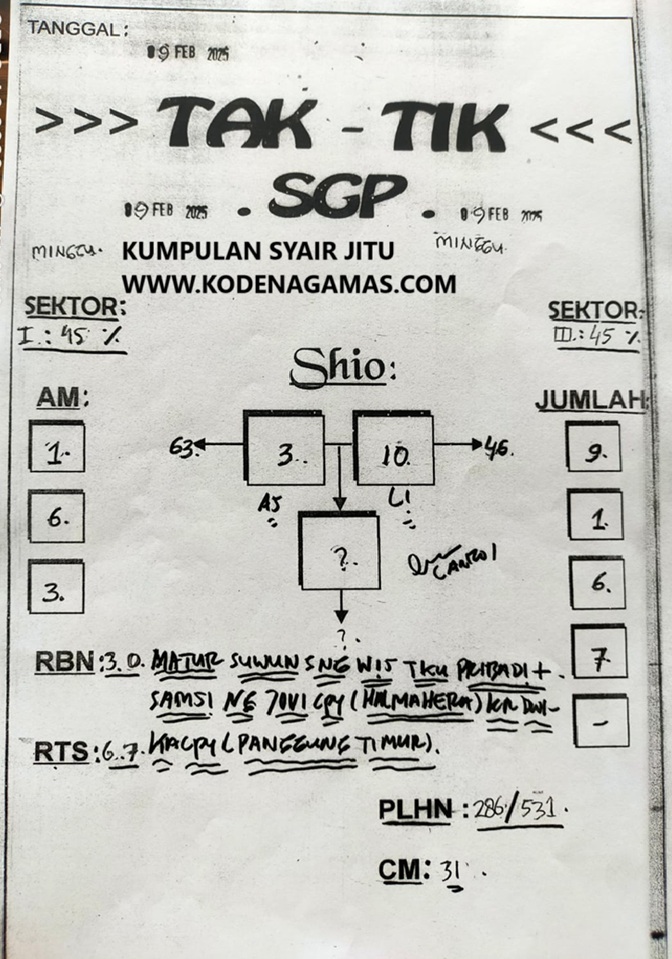 TANGGAL:
09 FEB 2025
>>> TAK - TIK <<<
. SGP .
09 FEB 2025
09 FEB 2025
MINGGU.
MINGGU.
KUMPULAN SYAIR JITU
WWW.KODENAGAMAS.COM
SEKTOR:
I.: 45 %
SEKTOR:
III.: 45 %
Shio:
AM:
JUMLAH
1.
6.
3.
63.
3..
10.
46.
AJ
LI
?.
?.
9.
1.
6.
7.
-
RBN: 3.0. MATUR SUWUN SNG WIS TKU PRIBADI +
SAMSI NG JOVI CPY (HALMAHERA) KR DWI-
RTS: 6.7. KACPY (PANGGUNG TIMUR).
PLHN: 286/531.
CM: 31.